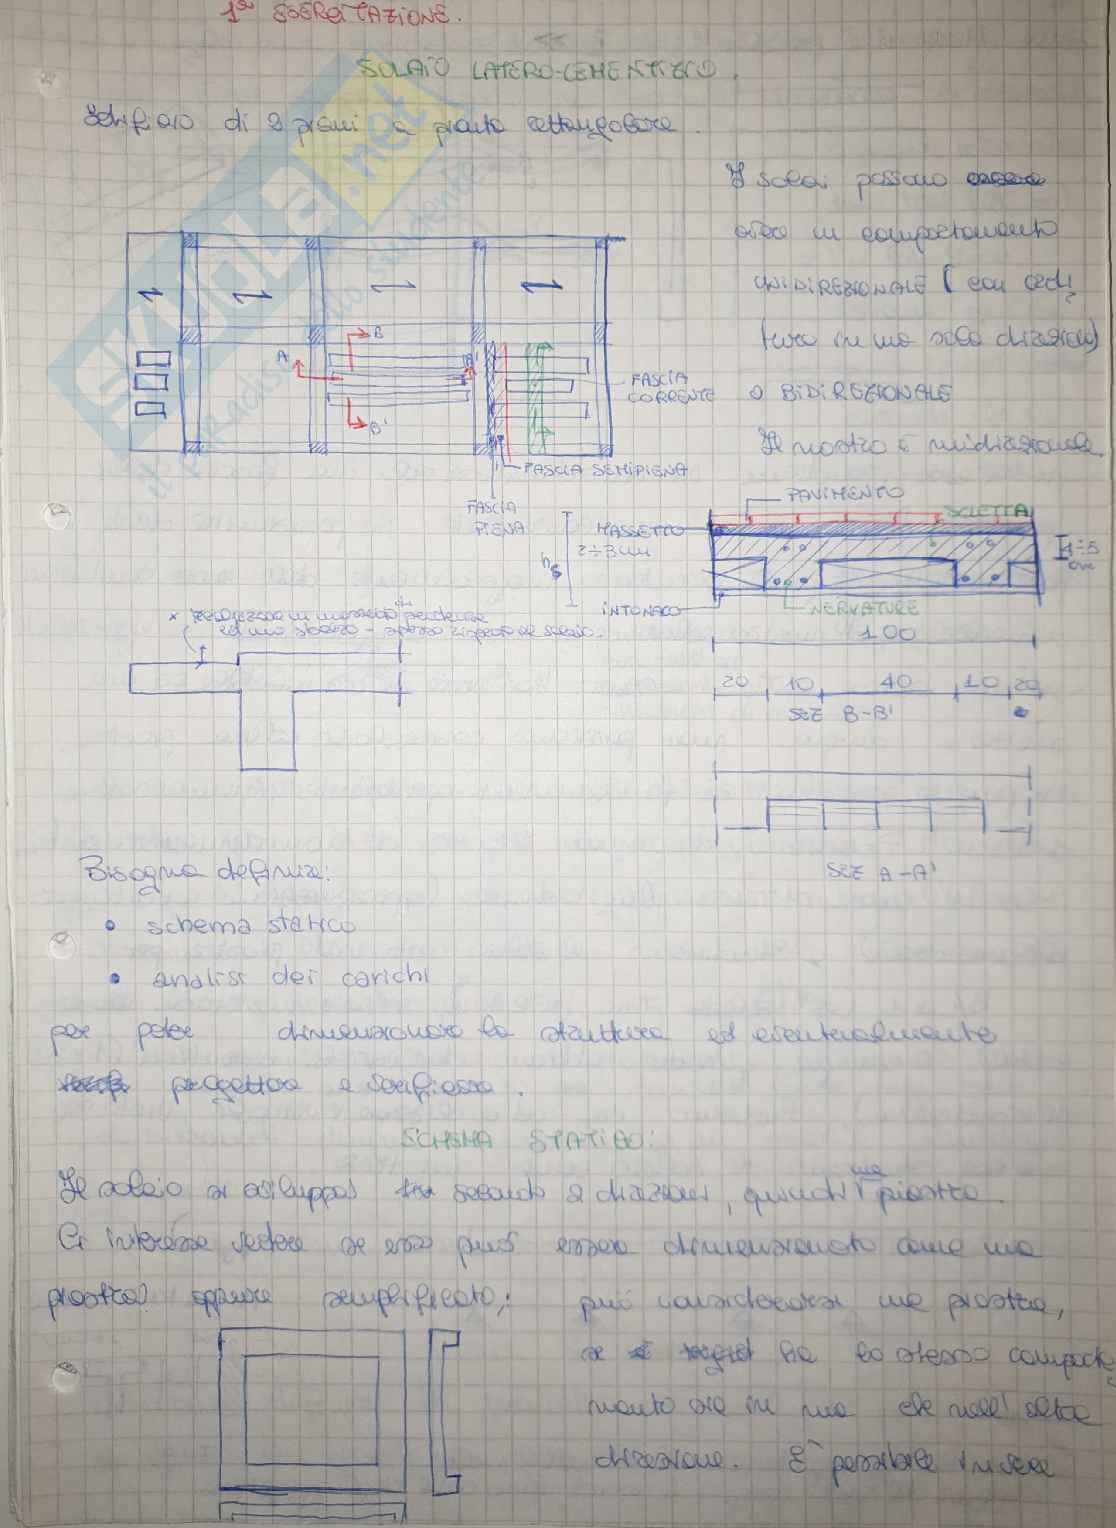 1ª ESERCITAZIONE.
SOLAIO LATERO-CEMENTIZIO.
Edificio di 2 piani a pianta rettangolare.
I solai possono
avere un comportamento
UNIDIREZIONALE (con cedi
in una sola direzione)
O BIDIREZIONALE
Il nostro è unidirezionale.
A
B
A'
B'
FASCIA
CORRENTE
FASCIA SEMIPIENA
FASCIA
PIENA
PAVIMENTO
SOLETTA
MASSETTO
2÷3 cm
hs
4÷5
cm
INTONACO
NERVATURE
100
20 10 40 10 20
SEZ B-B'
* realizzato in
ad uno sbalzo - spesso rispetto al solaio.
SEZ A-A'
Bisogna definire:
• schema statico
• analisi dei carichi
per poter dimensionare la struttura ed eventualmente
progettare e verificare.
SCHEMA STATICO:
Il solaio si sviluppa secondo 2 direzioni, quindi una piastra.
Ci interessa vedere se esso può essere dimensionato come una
piastra oppure semplificato,: può considerarsi una piastra,
se ha lo stesso comporta
mento sia in una che nell'altra
direzione. E' possibile invece
SKUOLA.net
il paradiso dello studente